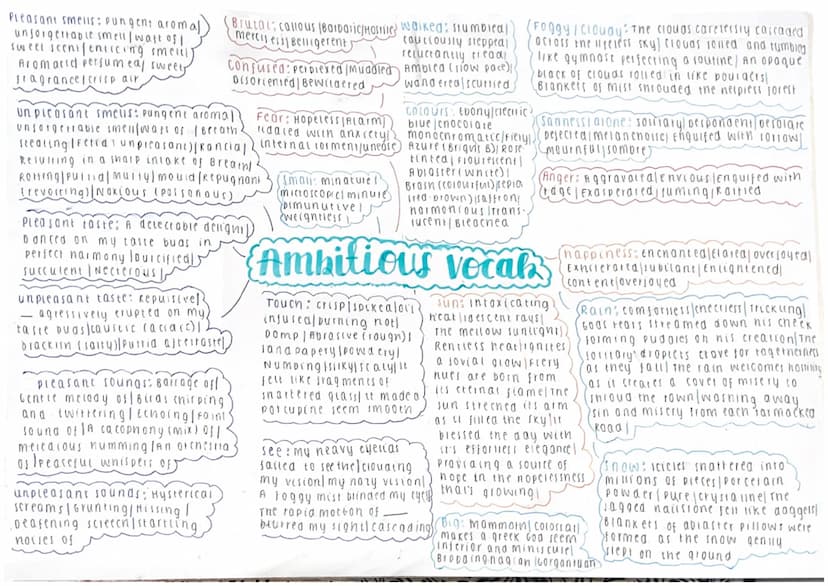 Pleasant smells: Pungent aroma/
unforgettable smell/waft of/
sweet scent/enticing smell/
Aromatic perfumed/sweet
fragrance/crisp air
unpleasant smells: Pungent aroma/
unforgettable smell/waft of/Breath
stealing/Fetid (unpleasant)/Rancid/
Resulting in a sharp intake of Breath/
Rotting/Putrid/Musty/mould/Repugnant
(revolting)/Noxious (poisonous)
Pleasant taste: A delectable delight/
Danced on my taste buds in
perfect harmony/
succulent/
unpleasant taste: Repulsive/
__ aggressively erupted on my
taste buds/caustic (acidic)/
Brackish (salty)/Putrid aftertaste/
pleasant sounds: Barrage of/
Gentle melody of/Birds chirping
and twittering/Echoing/Faint
sound of/A cacophony (mix) of/
melodious humming/An orchestra
of/peaceful whispers of
unpleasant sounds: Hysterical
screams/Grunting/Hissing/
Deafening screech/startling
noises of
Brutal: callous/Barbaric/Hostile/
merciless/Belligerent
Confused: Perplexed/Muddled
Disoriented/Bewildered
Fear: Hopeless/Alarm/
ridden with anxiety/
internal torment/unease
Small: minature/
microscopic/minute
Diminutive/
weightless/
Walked: stumbled/
cautiously stepped/
reluctantly tread/
Ambled (slow pace)/
wandered/scurried
colours: Ebony/electric
blue/chocolate
monochromatic/Fiery/
Azure (Bright B)/Rose
tinted/Flourecent/
Ablaster (white)/
(colourful)/sepia
(red-brown)/saffron/
harmonious/trans-
lucent/Bleached
Foggy/Cloudy: The clouds carelessly cascaded
across the lifeless sky/clouds rolled and tumbled
like gymnast perfecting a routine/An opaque
block of clouds rolled in like boulders/
Blankets of mist shrouded the helpless forest
Sadness/alone: solitary/Despondent/desolate
dejected/melancholic/Engulfed with sorrow/
mournful/sombre
Anger: Aggravated/envious/engulfed with
rage/Exasperated/fuming/
Ambitious vocab
Happiness: enchanted/Elated/overjoyed/
Exhilerated/Jubilant/Enlightened/
content/overjoyed
Touch: crisp/spiked/oil
infused/burning hot/
Damp/Abrasive (rough)/
sandpapery/powdery/
Numbing/silky/scaly/it
felt like fragments of
shattered glass/it made a
porcupine seem smooth
See: my heavy eyelids
failed to see the/clouding
my vision/my hazy vision/
A foggy mist blinded my eyes/
The rapid motion of __
blurred my sight/cascading
Sun: Intoxicating
heat/
the mellow sunlight/
Rentless heat/ignites
a jovial glow/Fiery
hues are born from
its eternal flame/The
sun streched its arm
as it filled the sky/it
blessed the day with
it's effortless elegance/
Providing a source of
hope in the hopelessness
that's growing/
Big: Mammoth/colossal/
makes a greek god seem
inferior and miniscule/
Brobdingnagian/Gorgantuan
Rain: comfortless/cheerless/Trickling/
Gods tears streamed down his cheek
forming puddles on his creation/The
solitary droplets crave for togetherness
as they fall/The rain welcomes
as it creates a cover of misery to
shroud the town/washing away
sin and misery from each tarmacked
road/
Snow: icicles shattered into
millions of pieces/porcelain
powder/pure/crystaline/The
jagged hailstone felt like daggers/
Blankets of ablaster pillows were
formed as the snow gently
slept on the ground